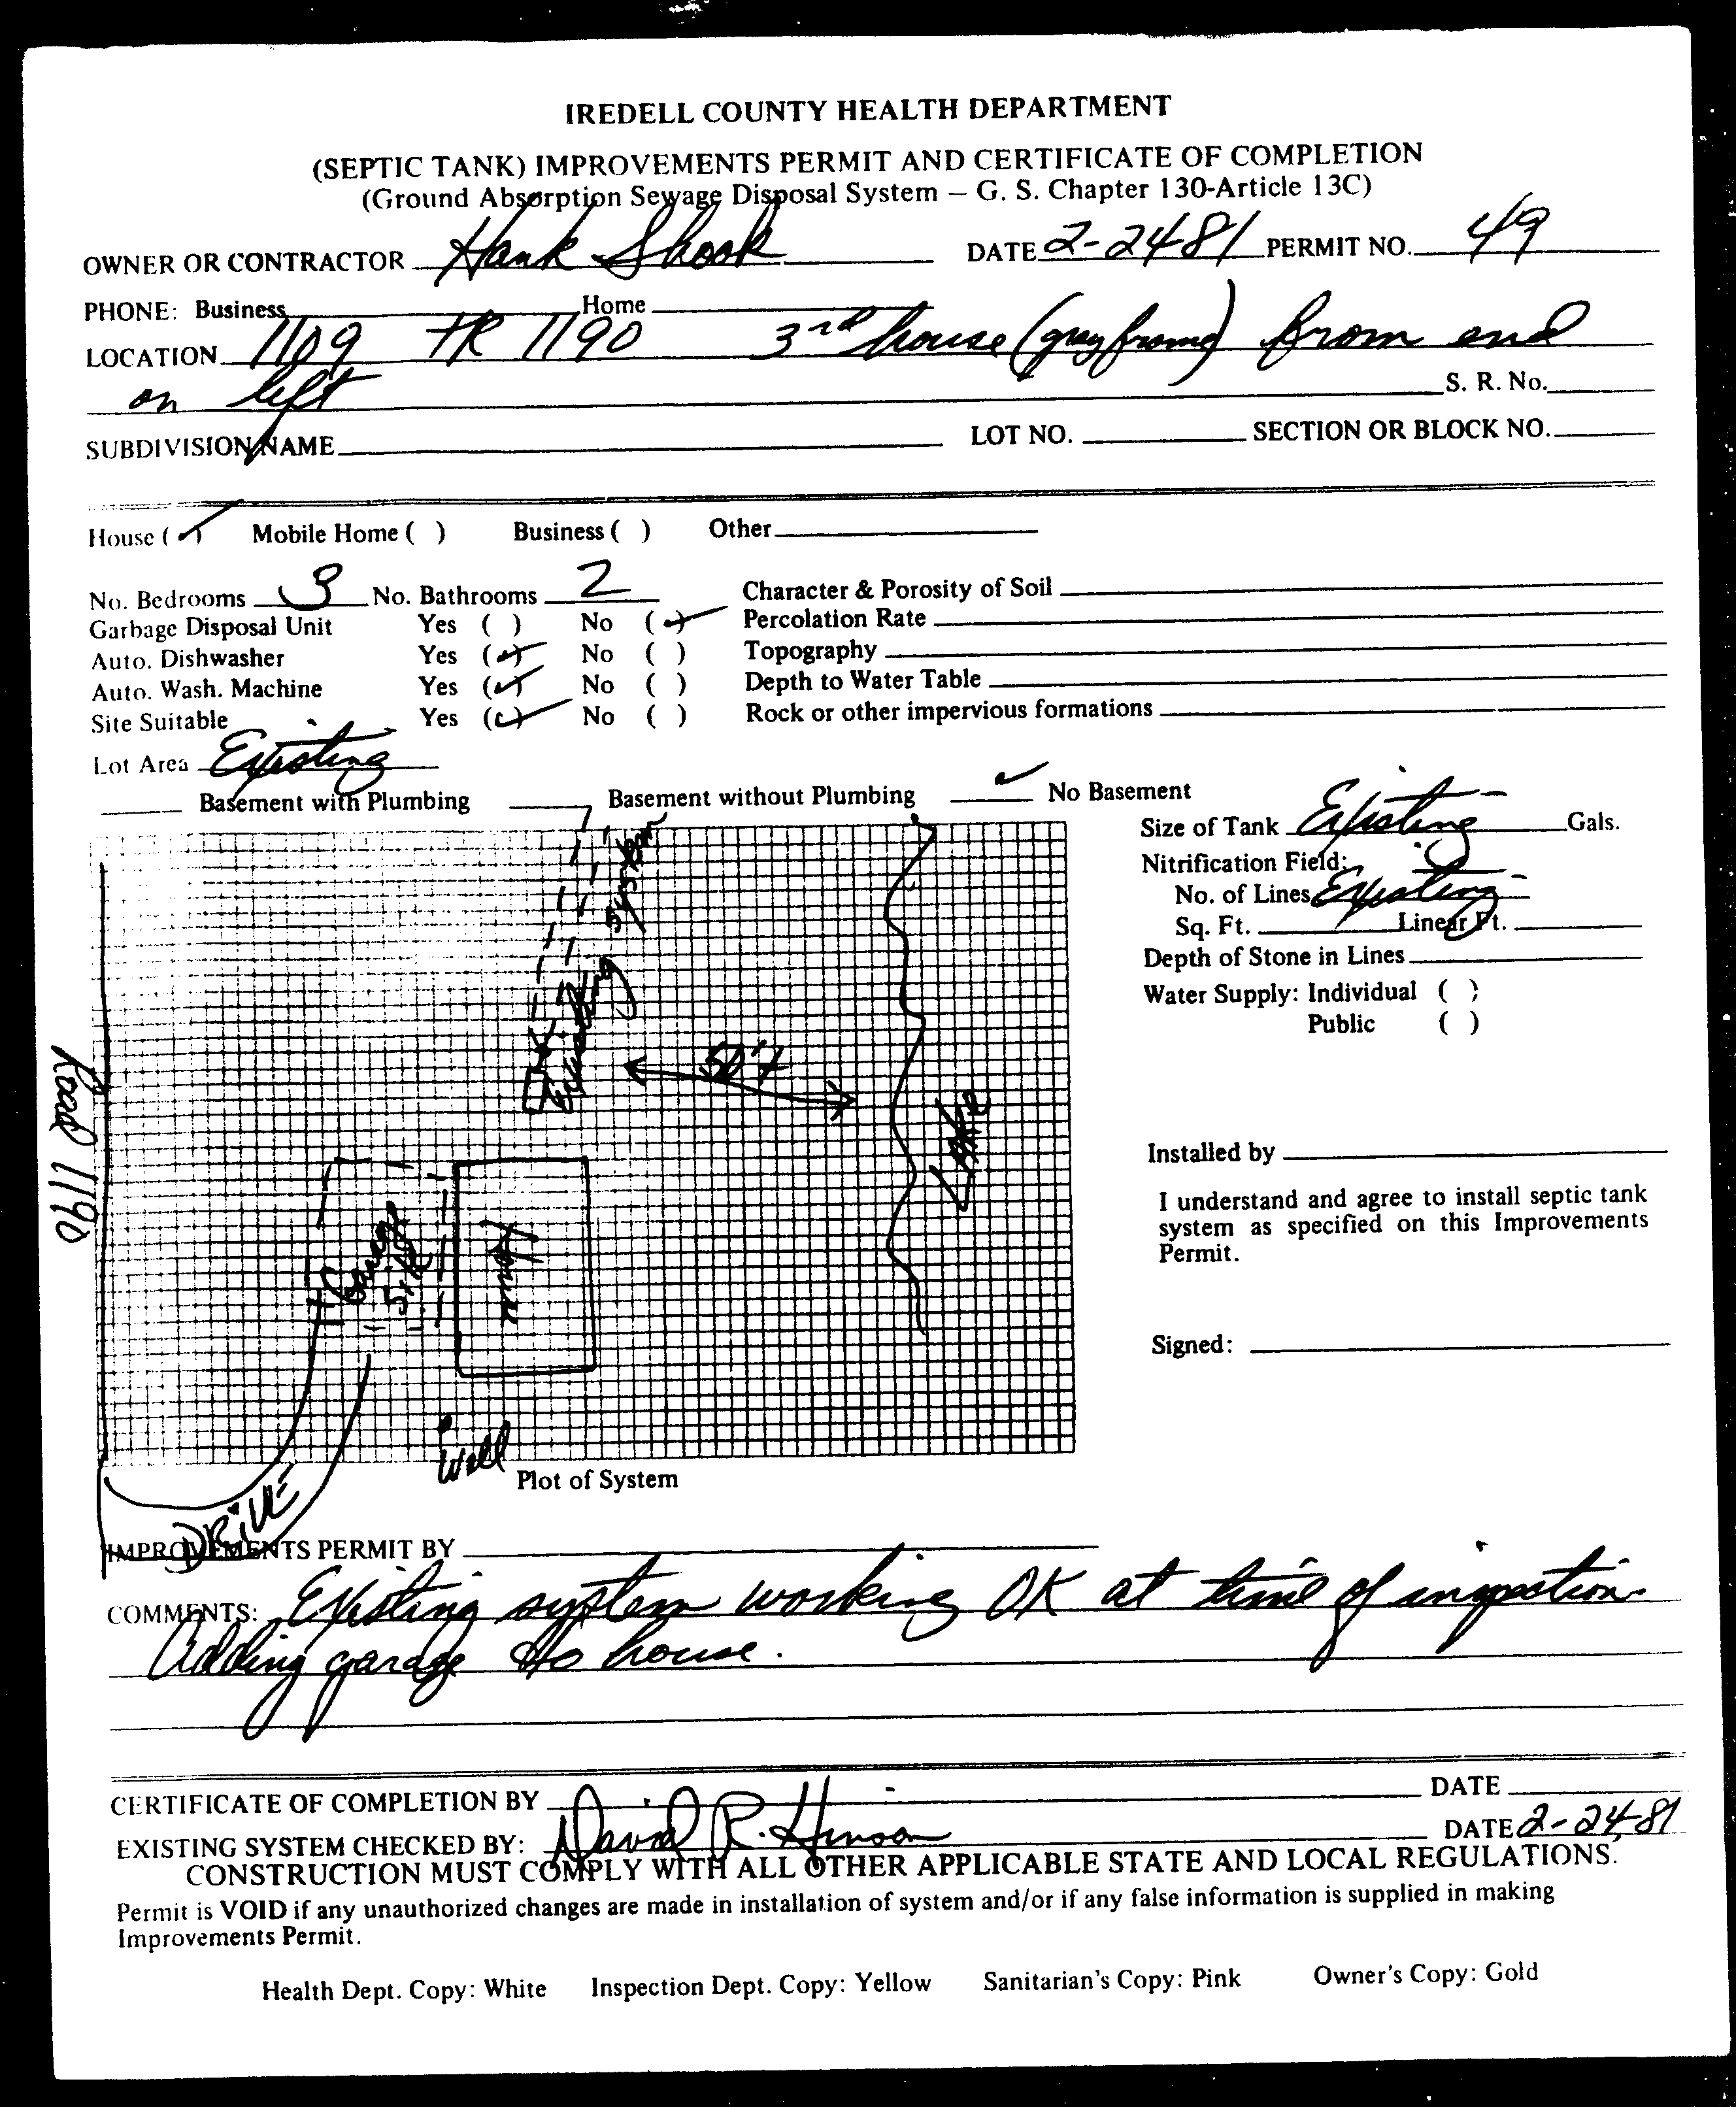 IREDELL COUNTY HEALTH DEPARTMENT
(SEPTIC TANK) IMPROVEMENTS PERMIT AND CERTIFICATE OF COMPLETION
(Ground Absorption Sewage Disposal System – G. S. Chapter 130-Article 13C)
OWNER OR CONTRACTOR Hank Shook DATE 2-24-81 PERMIT NO. 49
PHONE: Business Home
LOCATION 1109 TR 1190 3rd house (gray frame) from end
on left S. R. No.
SUBDIVISION NAME LOT NO. SECTION OR BLOCK NO.
House (✓) Mobile Home ( ) Business ( ) Other
No. Bedrooms 3 No. Bathrooms 2 Character & Porosity of Soil
Garbage Disposal Unit Yes ( ) No (✓) Percolation Rate
Auto. Dishwasher Yes (✓) No ( ) Topography
Auto. Wash. Machine Yes (✓) No ( ) Depth to Water Table
Site Suitable Yes (✓) No ( ) Rock or other impervious formations
Lot Area Existing
Basement with Plumbing Basement without Plumbing ✓ No Basement
Size of Tank Existing Gals.
Nitrification Field:
No. of Lines Existing
Sq. Ft. Linear Ft.
Depth of Stone in Lines
Water Supply: Individual ( )
Public ( )
Existing system
50'+
LAKE
Road 1190
Garage
Site
House
Well
Drive
Installed by
I understand and agree to install septic tank
system as specified on this Improvements
Permit.
Signed:
Plot of System
IMPROVEMENTS PERMIT BY
COMMENTS: Existing system working OK at time of inspection
Adding garage to house.
CERTIFICATE OF COMPLETION BY DATE
EXISTING SYSTEM CHECKED BY: David R. Hinson DATE 2-24-81
CONSTRUCTION MUST COMPLY WITH ALL OTHER APPLICABLE STATE AND LOCAL REGULATIONS.
Permit is VOID if any unauthorized changes are made in installation of system and/or if any false information is supplied in making
Improvements Permit.
Health Dept. Copy: White Inspection Dept. Copy: Yellow Sanitarian's Copy: Pink Owner's Copy: Gold